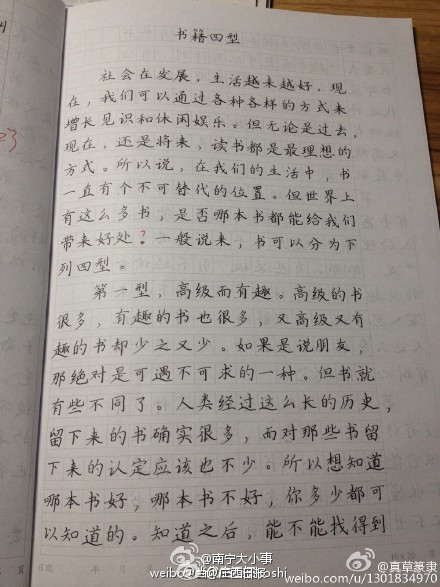 书籍四型
社会在发展，生活越来越好。现
在，我们可以通过各种各样的方式来
增长见识和休闲娱乐。但无论是过去，
现在，还是将来，读书都是最理想的
方式。所以说，在我们的生活中，书
一直有个不可替代的位置。但世界上
有这么多书，是否哪本书都能给我们
带来好处？一般说来，书可以分为下
列四型。
第一型，高级而有趣。高级的书
很多，有趣的书也很多，又高级又有
趣的书却少之又少。如果是说朋友，
那绝对是可遇不可求的一种。但书就
有些不同了。人类经过这么长的历史，
留下来的书确实很多，而对那些书留
下来的认定应该也不少。所以想知道
哪本书好，哪本书不好，你多少都可
以知道的。知道之后，能不能找得到
19×20
@南宁大小事
@真草篆隶
weibo.com/u/1301834970